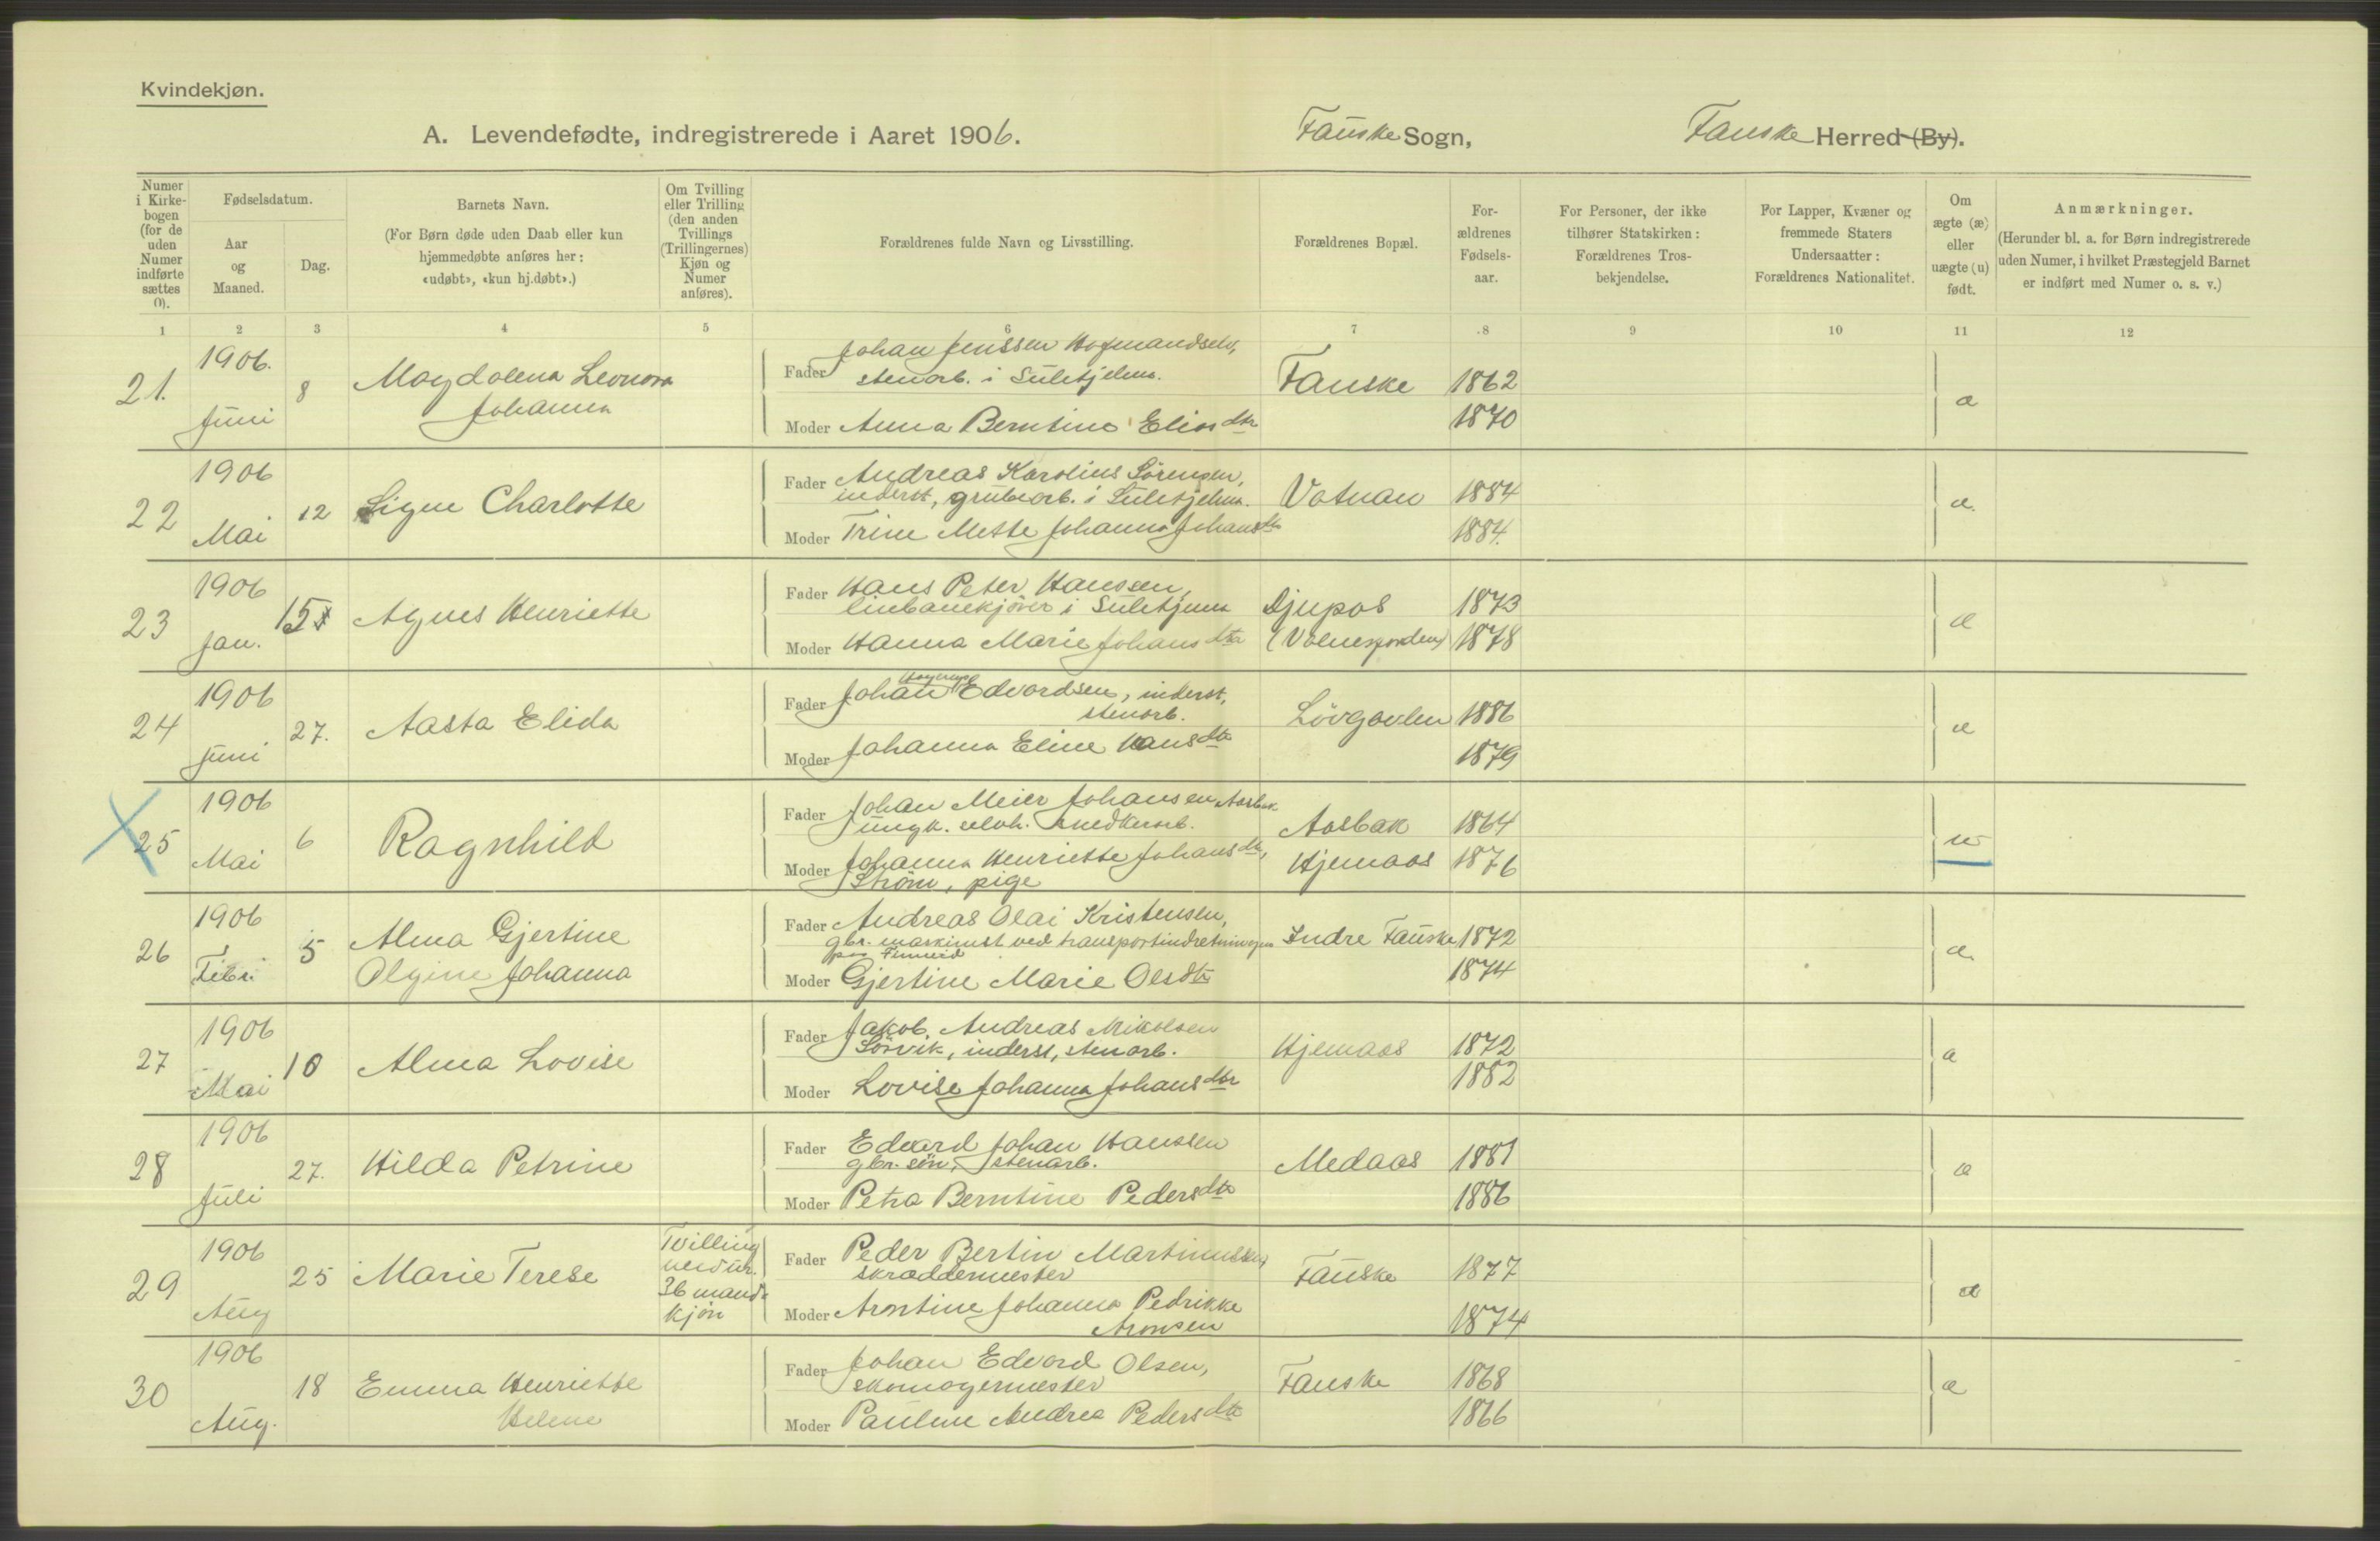 Kvindekjøn.
A. Levendefødte, indregistrerede i Aaret 1906.
Fauske Sogn,
Fauske Herred (By).
Numer i Kirke-bogen (for de uden Numer indførte sættes 0).
Fødselsdatum.
Aar og Maaned.
Dag.
Barnets Navn.
(For Børn døde uden Daab eller kun hjemmedøbte anføres her: «udøbt», «kun hj.døbt».)
Om Tvilling eller Trilling (den anden Tvillings (Trillingernes) Kjøn og Numer anføres).
Forældrenes fulde Navn og Livsstilling.
Forældrenes Bopæl.
For-ældrenes Fødsels-aar.
For Personer, der ikke tilhører Statskirken: Forældrenes Tros-bekjendelse.
For Lapper, Kvæner og fremmede Staters Undersaatter: Forældrenes Nationalitet.
Om ægte (æ) eller uægte (u) født.
Anmærkninger.
(Herunder bl. a. for Børn indregistrerede uden Numer, i hvilket Præstegjeld Barnet er indført med Numer o. s. v.)
1 2 3 4 5 6 7 8 9 10 11 12
21. 1906. Juni 8 Magdalena Leonora Johanna
Fader Johan Jenssen
stenarb. i Sulitjelma. Fauske 1862 æ
Moder Anna Berntine Eliasdtr 1870
22 1906 Mai 12 Signe Charlotte
Fader Andreas Karolius Sörensen,
inderst, grubearb. i Sulitjelma. Vatnan 1884 æ.
Moder Trine Mette Johanna Johansdtr 1884.
23 1906 Jan. 15 Agnes Henriette
Fader Hans Peter Hanssen,
linbanekjører i Sulitjelma Djupos 1873 æ
Moder Hanna Marie Johansdtr 1878
24 1906 Juni 27. Aasta Elida
Fader Johan Edvardsen, inderst,
stenarb. Lövgavlen 1886 æ
Moder Johanna Eline Hansdtr 1879
25 1906 Mai 6 Ragnhild
Fader Johan Meier Johansen Aasbak
ungk. selvh. snedkerarb. Aasbak 1864 u
Moder Johanna Henriette Johansdtr,
Ström, pige Hjemaas 1876
26 1906 Febr. 5 Alma Gjertine Olgine Johanna
Fader Andreas Olai Kristensen,
gbr. maskinist ved transportindretningen
paa Finneid Indre Fauske 1872 æ.
Moder Gjertine Marie Olsdtr 1874
27 1906 Mai 10 Alma Lovise
Fader Jakob Andreas Mikalsen
Sörvik, inderst, stenarb. Hjemaas 1872 æ
Moder Lovise Johanna Johansdtr 1882
28 1906 Juli 27. Hilda Petrine
Fader Edvard Johan Hanssen
gbr. sön, stenarb. Medaas 1881 æ
Moder Petra Berntine Pedersdtr 1886
29 1906 Aug 25 Marie Terese Tvilling med nr. 36 mandkjön
Fader Peder Bertin Martinussen
skræddermester Fauske 1877 æ
Moder Arontine Johanna Pedrikke
Aronsen 1874
30 1906 Aug. 18 Emma Henriette Helene
Fader Johan Edvard Olsen,
skomagermester Fauske 1868 æ
Moder Pauline Andrea Pedersdtr 1866